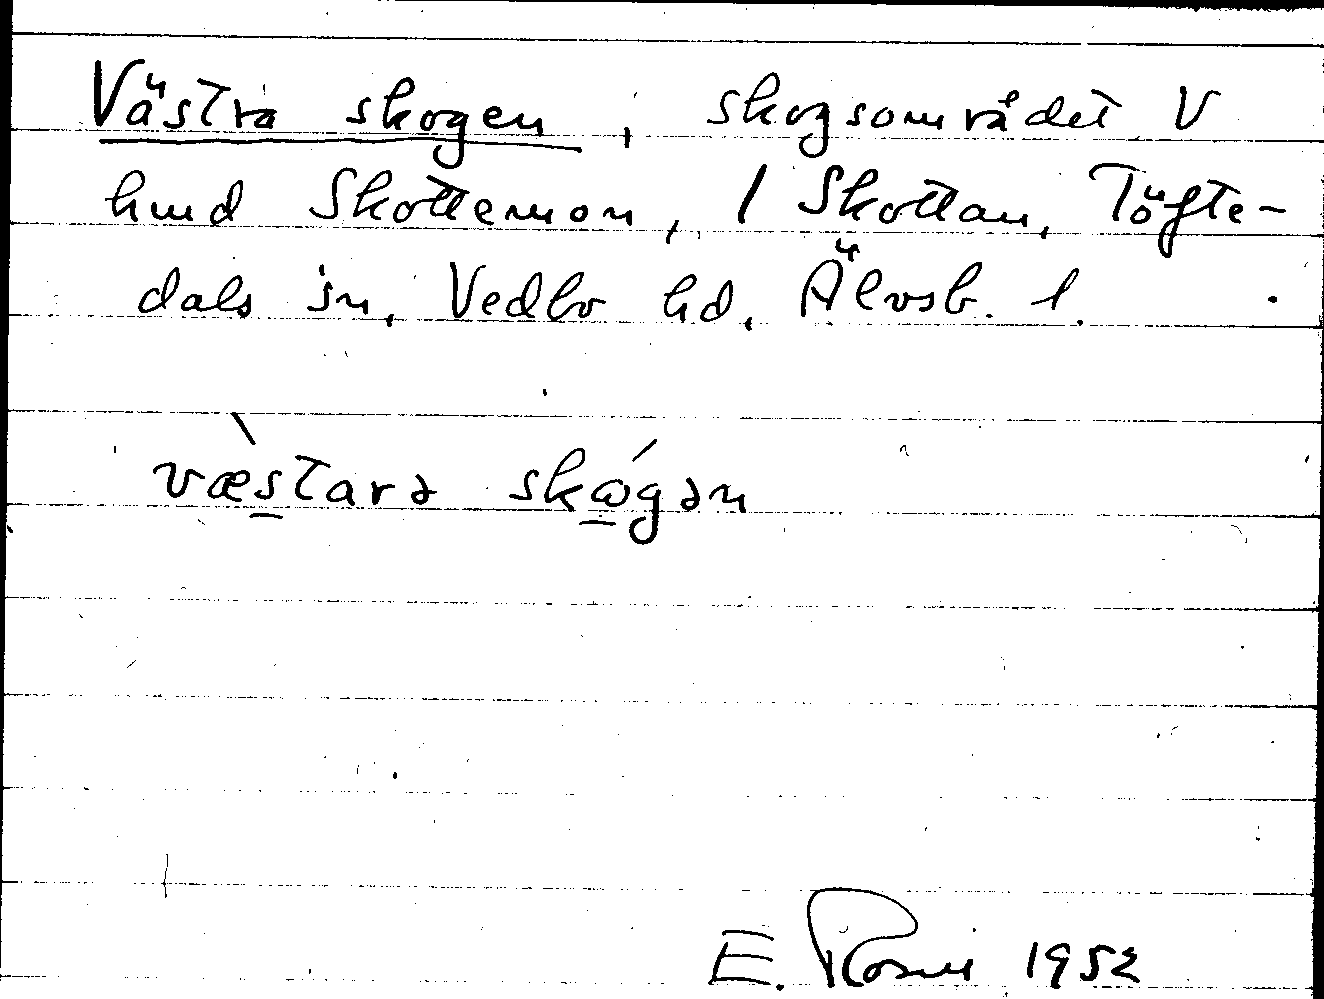 Västra skogen, skogsområdet V
hmd Skottemon, 1 Skottan, Töfte-
dals sn, Vedbo hd, Älvsb. l.
væstara skωgən
E. 1952